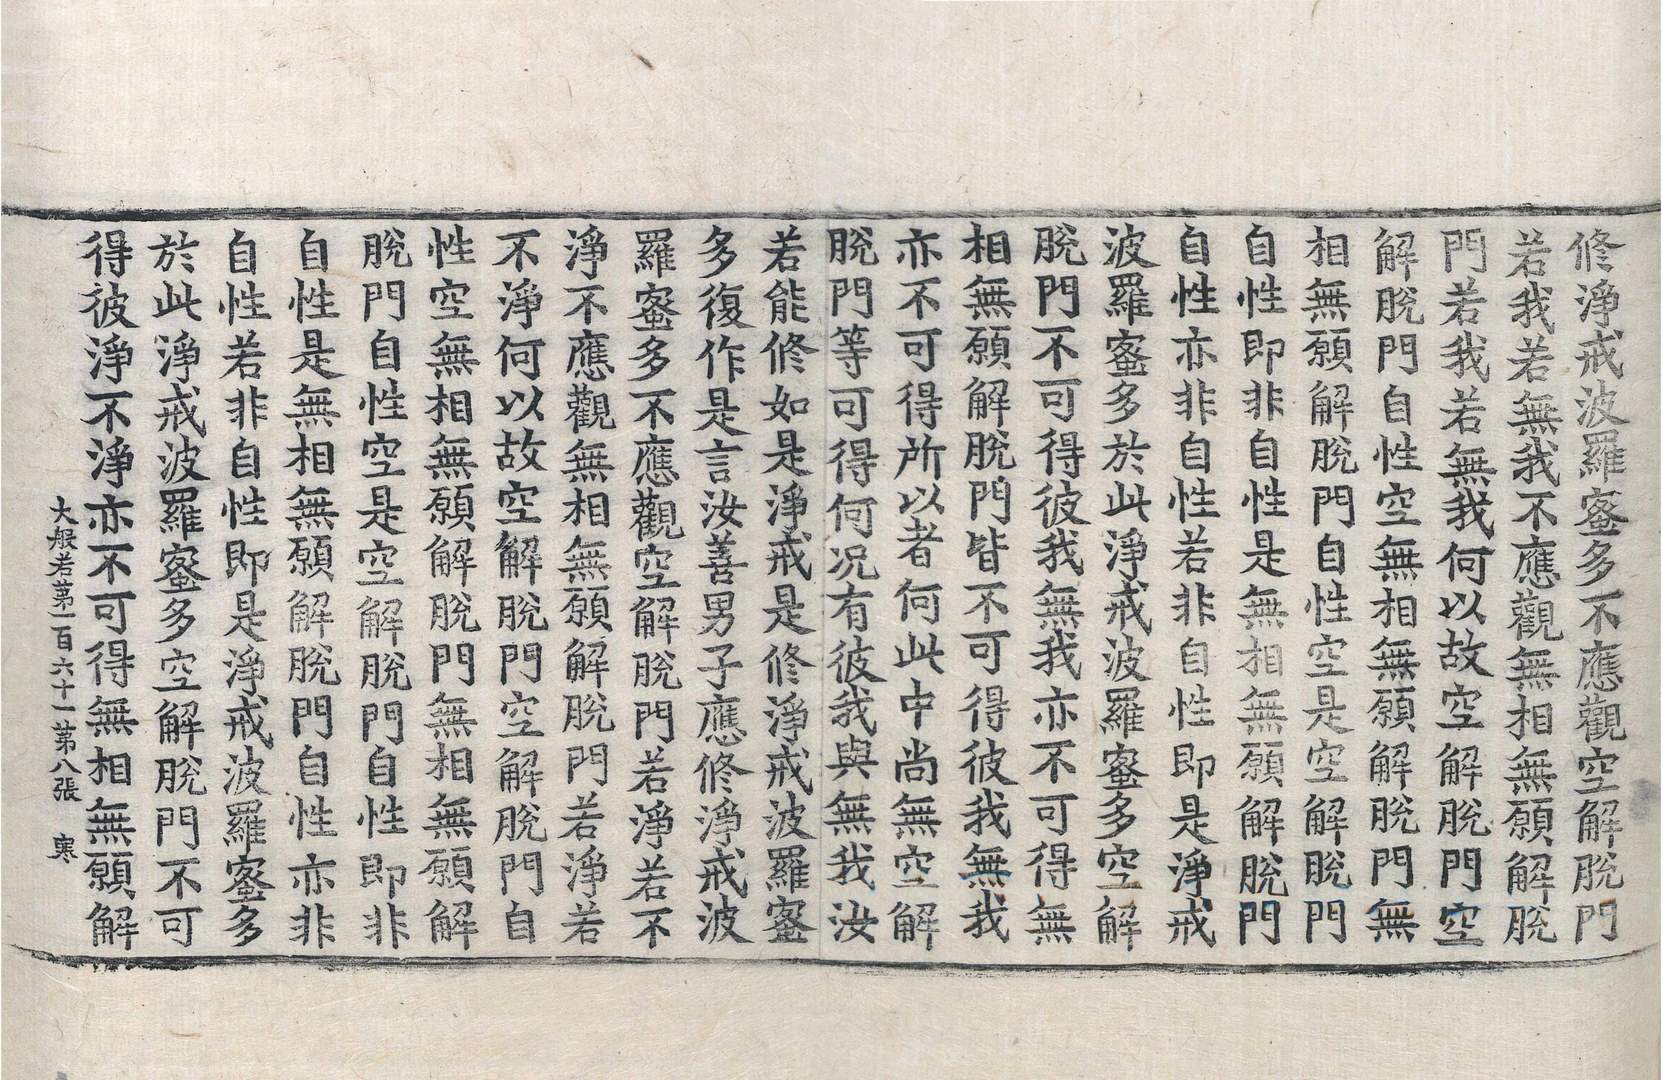 修淨戒波羅蜜多不應觀空解脫門
若我若無我不應觀無相無願解脫
門若我若無我何以故空解脫門空
解脫門自性空無相無願解脫門無
相無願解脫門自性空是空解脫門
自性即非自性是無相無願解脫門
自性亦非自性若非自性即是淨戒
波羅蜜多於此淨戒波羅蜜多空解
脫門不可得彼我無我亦不可得無
相無願解脫門皆不可得彼我無我
亦不可得所以者何此中尚無空解
脫門等可得何况有彼我與無我汝
若能修如是淨戒是修淨戒波羅蜜
多復作是言汝善男子應修淨戒波
羅蜜多不應觀空解脫門若淨若不
淨不應觀無相無願解脫門若淨若
不淨何以故空解脫門空解脫門自
性空無相無願解脫門無相無願解
脫門自性空是空解脫門自性即非
自性是無相無願解脫門自性亦非
自性若非自性即是淨戒波羅蜜多
於此淨戒波羅蜜多空解脫門不可
得彼淨不淨亦不可得無相無願解
大般若第一百六十一第八張 寒